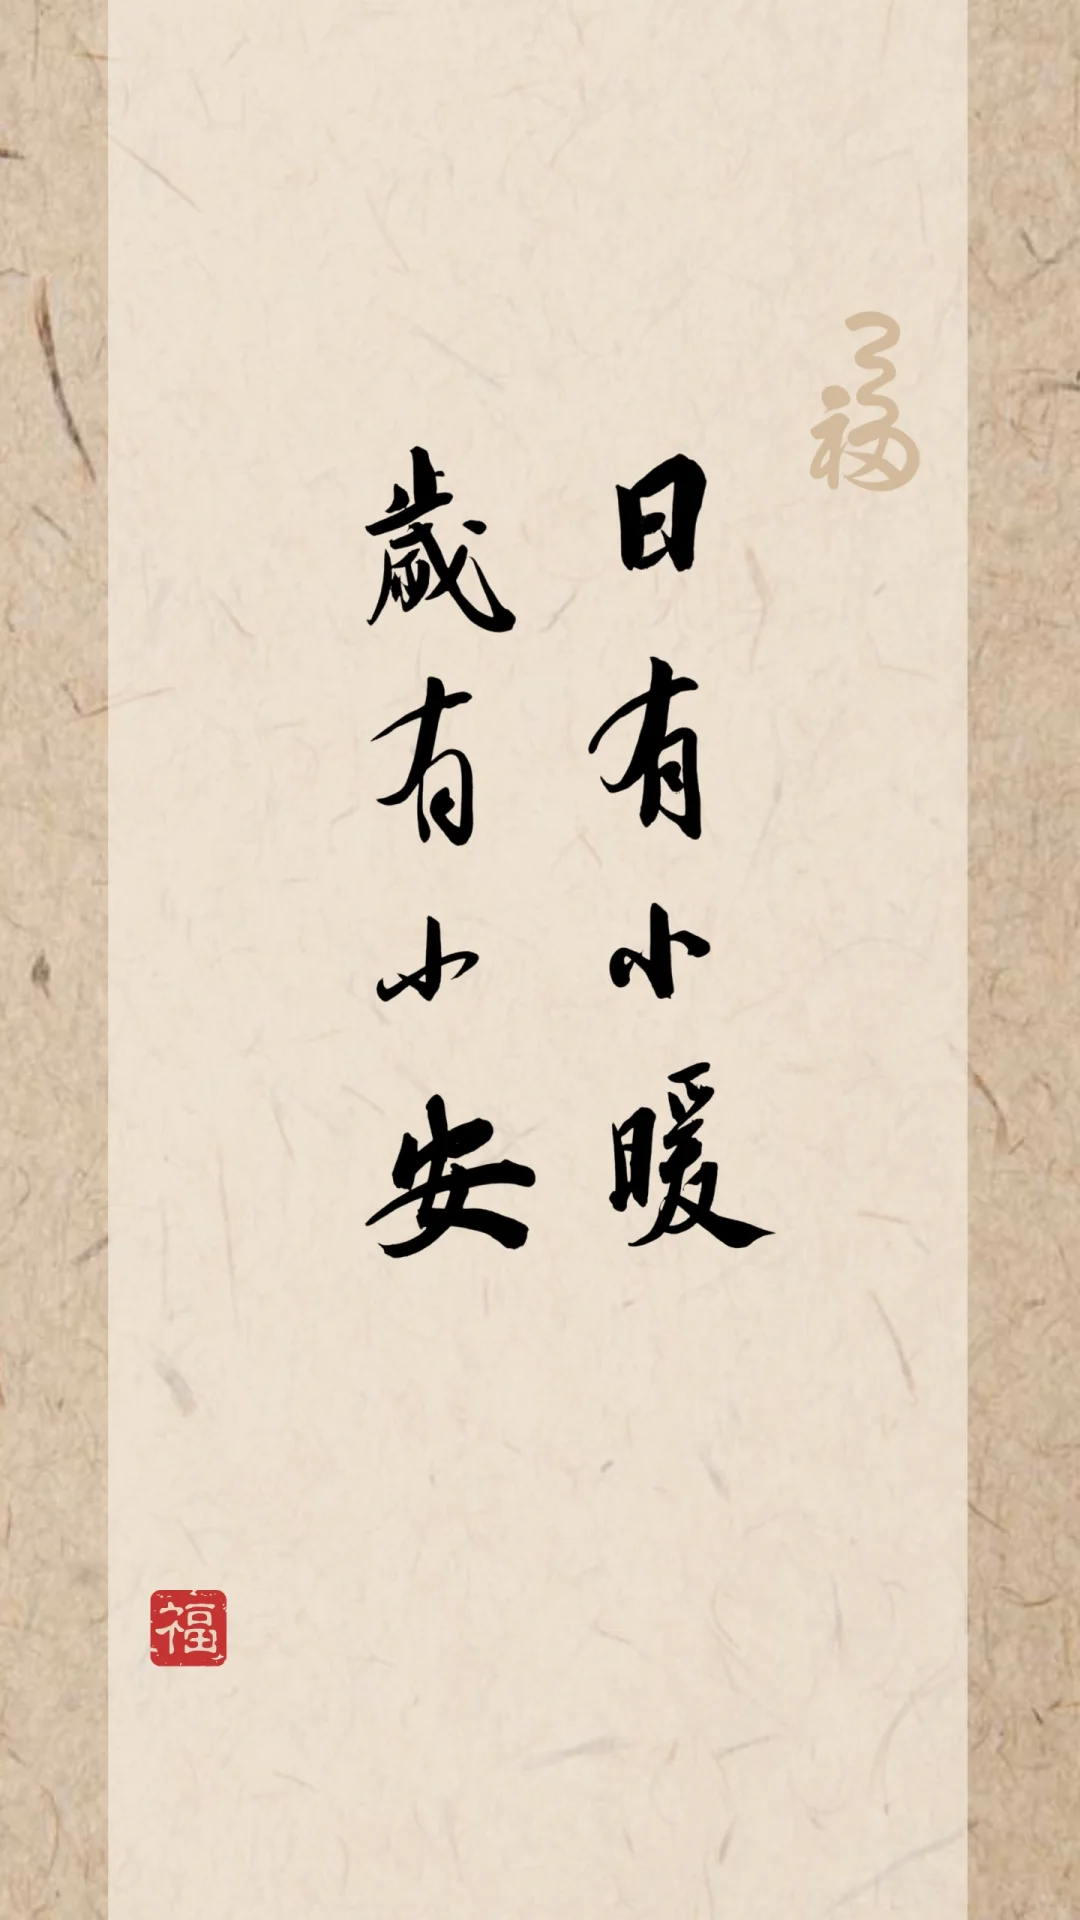 日有小暖
歲有小安
福